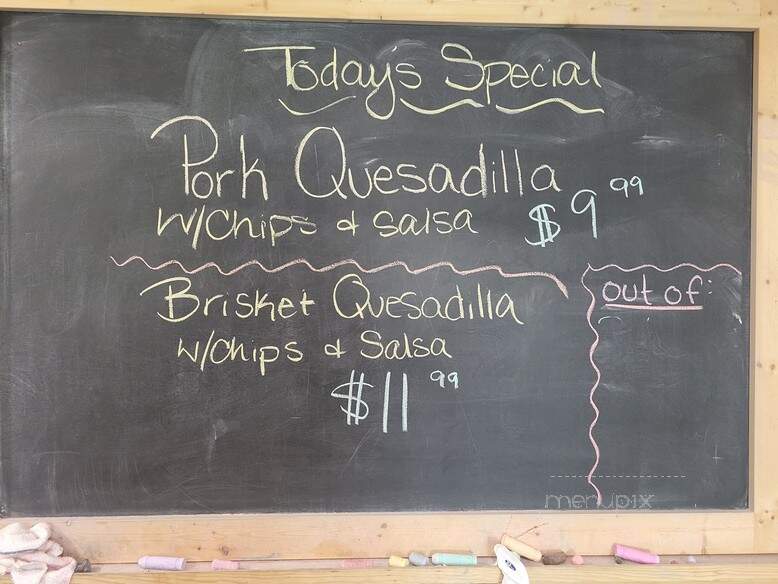 Today's Special
Pork Quesadilla
w/Chips & Salsa $9.99
Brisket Quesadilla
w/Chips & Salsa
$11.99
out of:
menupix